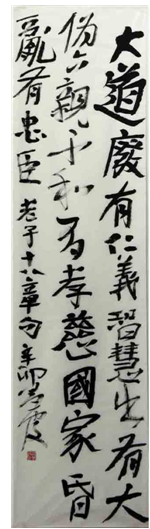 大道廢有仁義智慧出有大
偽六親不和有孝慈國家昏
亂有忠臣 老子十八章句 辛卯